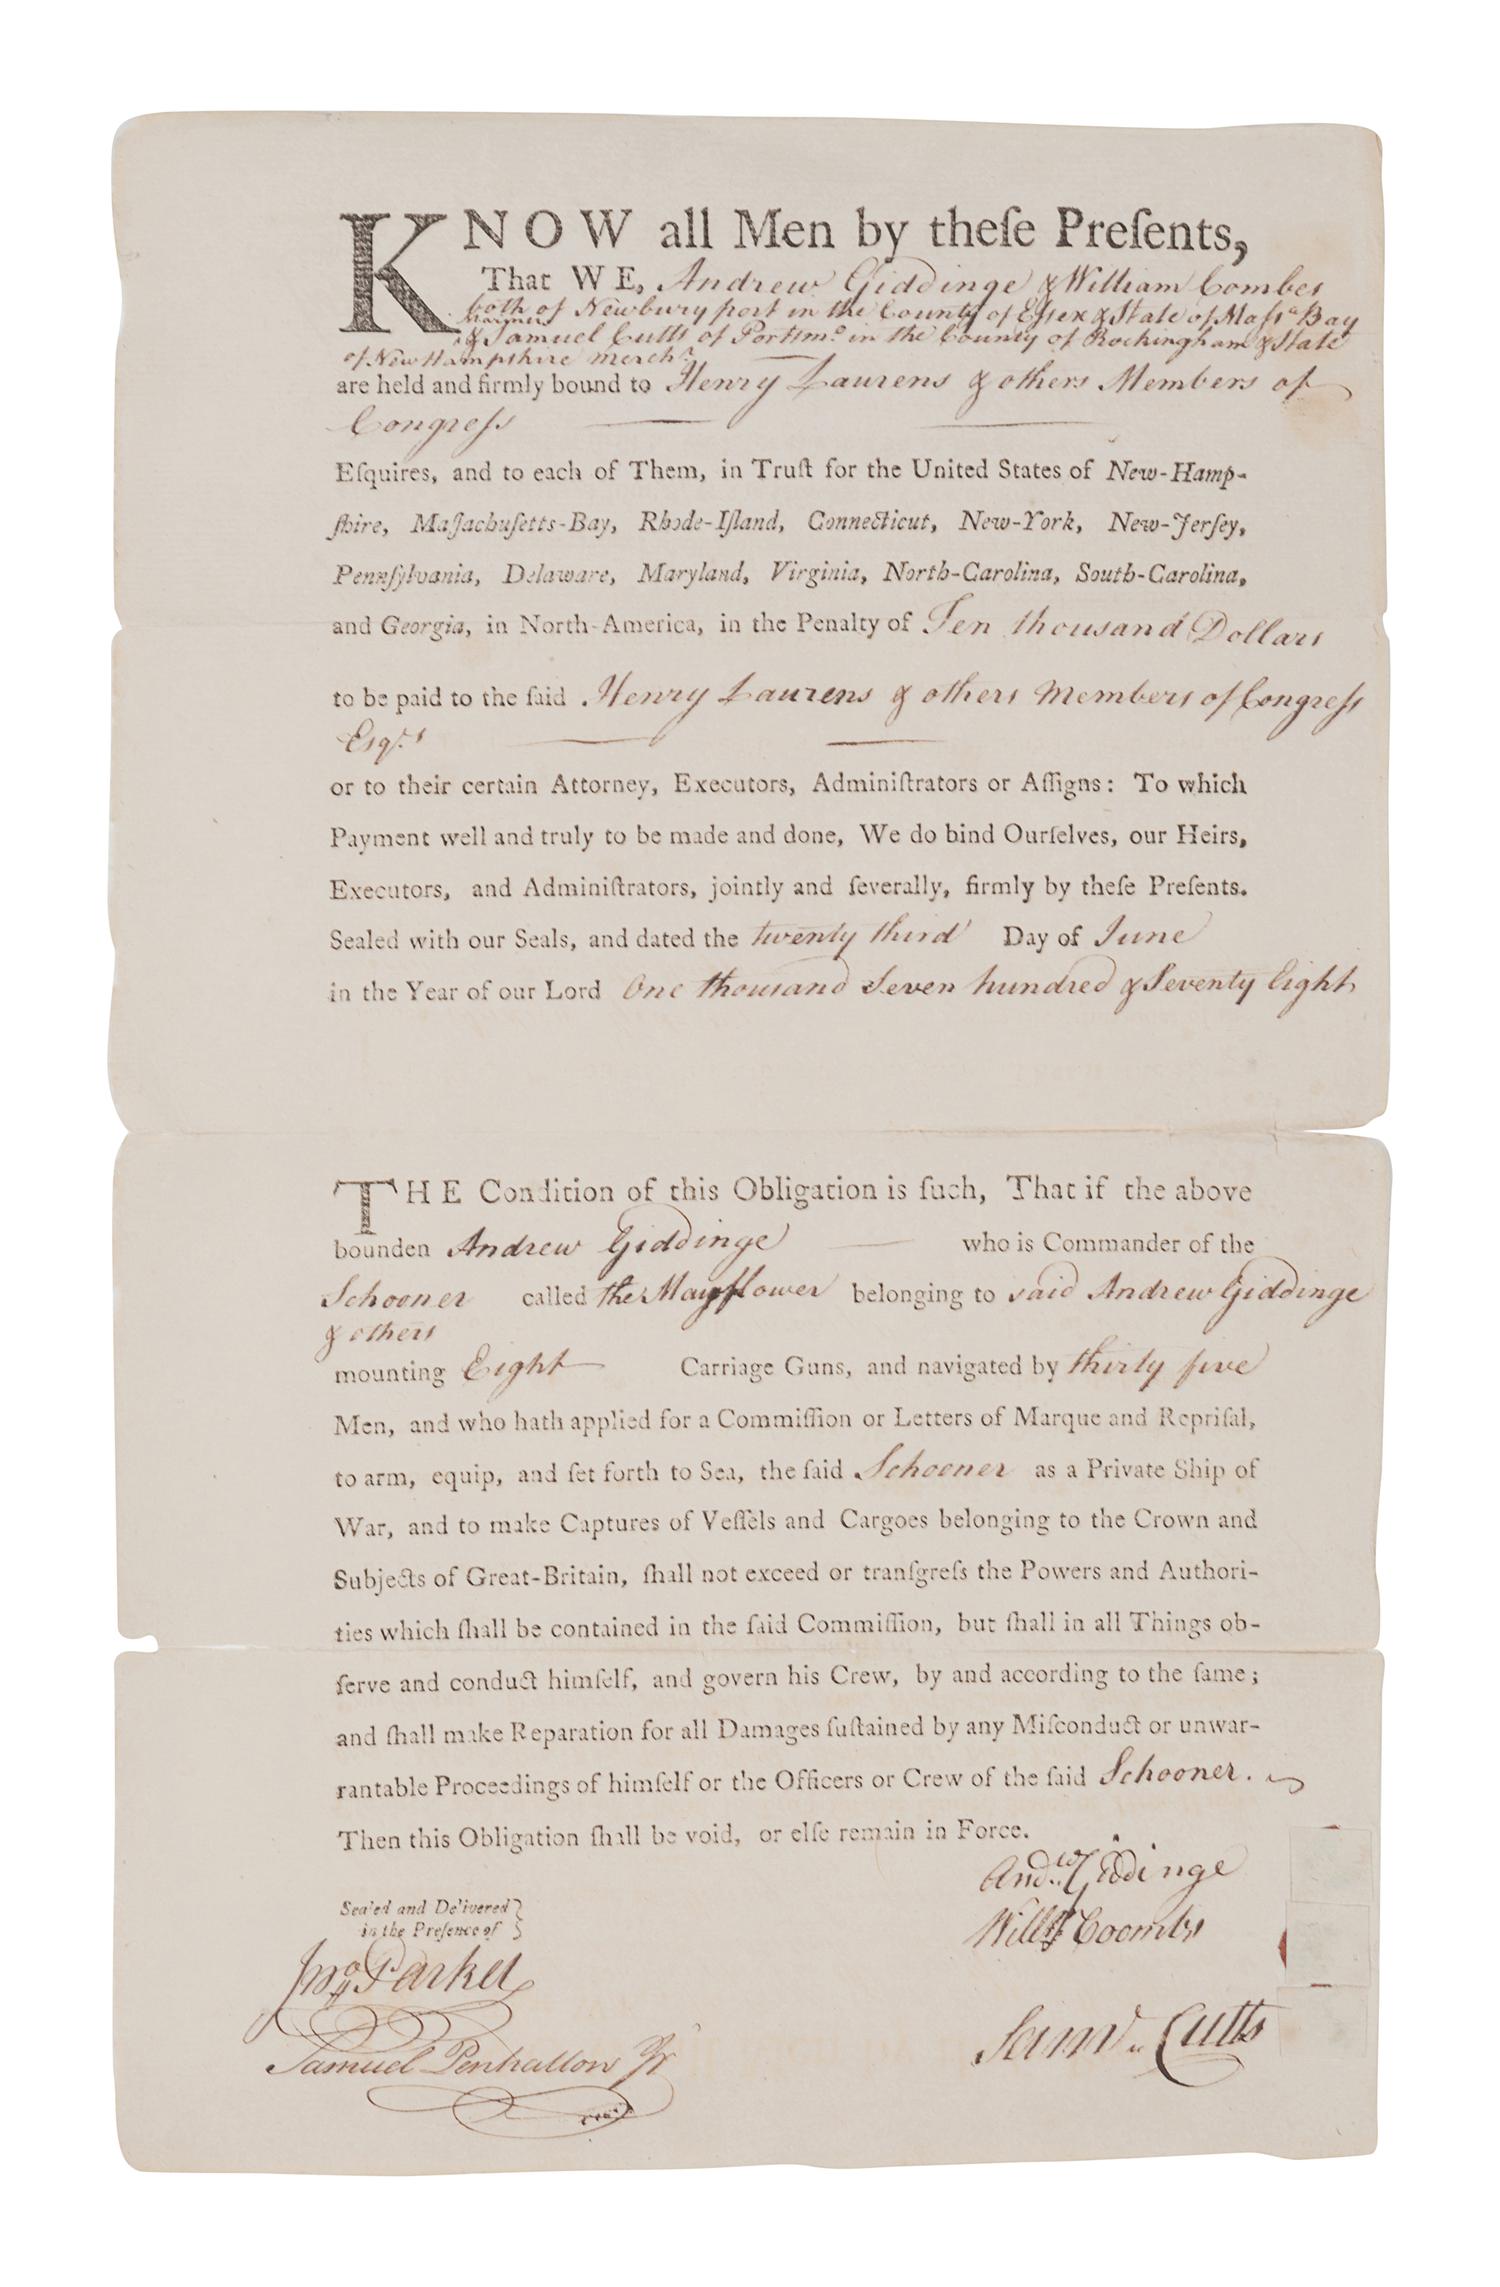 KNOW all Men by theſe Preſents,
That WE, Andrew Giddinge & William Combes
both of Newburyport in the County of Essex & State of Maſsᵃ Bay
Mariners
& Samuel Cutts of Portsmº in the County of Rockingham & State
of New Hampshire merchᵗ
are held and firmly bound to Henry Laurens & others Members of
Congreſs
Eſquires, and to each of Them, in Truſt for the United States of New-Hamp-
ſhire, Maſſachuſetts-Bay, Rhode-Iſland, Connecticut, New-York, New-Jerſey,
Pennſylvania, Delaware, Maryland, Virginia, North-Carolina, South-Carolina,
and Georgia, in North-America, in the Penalty of Ten thousand Dollars
to be paid to the ſaid Henry Laurens & others Members of Congreſs
Esqʳˢ
or to their certain Attorney, Executors, Adminiſtrators or Aſſigns: To which
Payment well and truly to be made and done, We do bind Ourſelves, our Heirs,
Executors, and Adminiſtrators, jointly and ſeverally, firmly by theſe Preſents.
Sealed with our Seals, and dated the twenty third Day of June
in the Year of our Lord One thousand Seven hundred & Seventy Eight
THE Condition of this Obligation is ſuch, That if the above
bounden Andrew Giddinge who is Commander of the
Schooner called the Mayflower belonging to said Andrew Giddinge
& others
mounting Eight Carriage Guns, and navigated by thirty five
Men, and who hath applied for a Commiſſion or Letters of Marque and Repriſal,
to arm, equip, and ſet forth to Sea, the ſaid Schooner as a Private Ship of
War, and to make Captures of Veſſels and Cargoes belonging to the Crown and
Subjects of Great-Britain, ſhall not exceed or tranſgreſs the Powers and Authori-
ties which ſhall be contained in the ſaid Commiſſion, but ſhall in all Things ob-
ſerve and conduct himſelf, and govern his Crew, by and according to the ſame;
and ſhall make Reparation for all Damages ſuſtained by any Miſconduct or unwar-
rantable Proceedings of himſelf or the Officers or Crew of the ſaid Schooner.
Then this Obligation ſhall be void, or elſe remain in Force.
Andʷ Giddinge
Sealed and Delivered
in the Preſence of
Willᵐ Coombs
Jnº Parker
Samˡ Cutts
Samuel Penhallow Jr